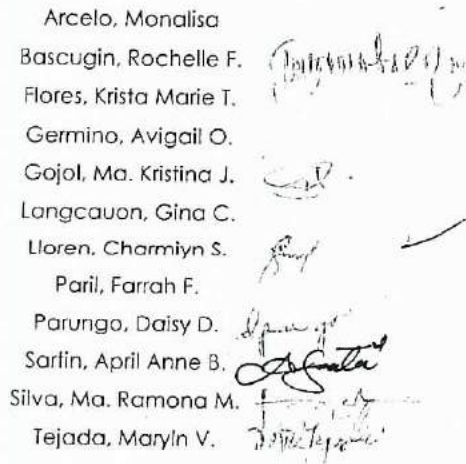 Arcelo, Monalisa
Bascugin, Rochelle F.
Flores, Krista Marie T.
Germino, Avigail O.
Gojol, Ma. Kristina J.
Langcauon, Gina C.
Lloren, Charmiyn S.
Paril, Farrah F.
Parungo, Daisy D.
Sartin, April Anne B.
Silva, Ma. Ramona M.
Tejada, Maryln V.